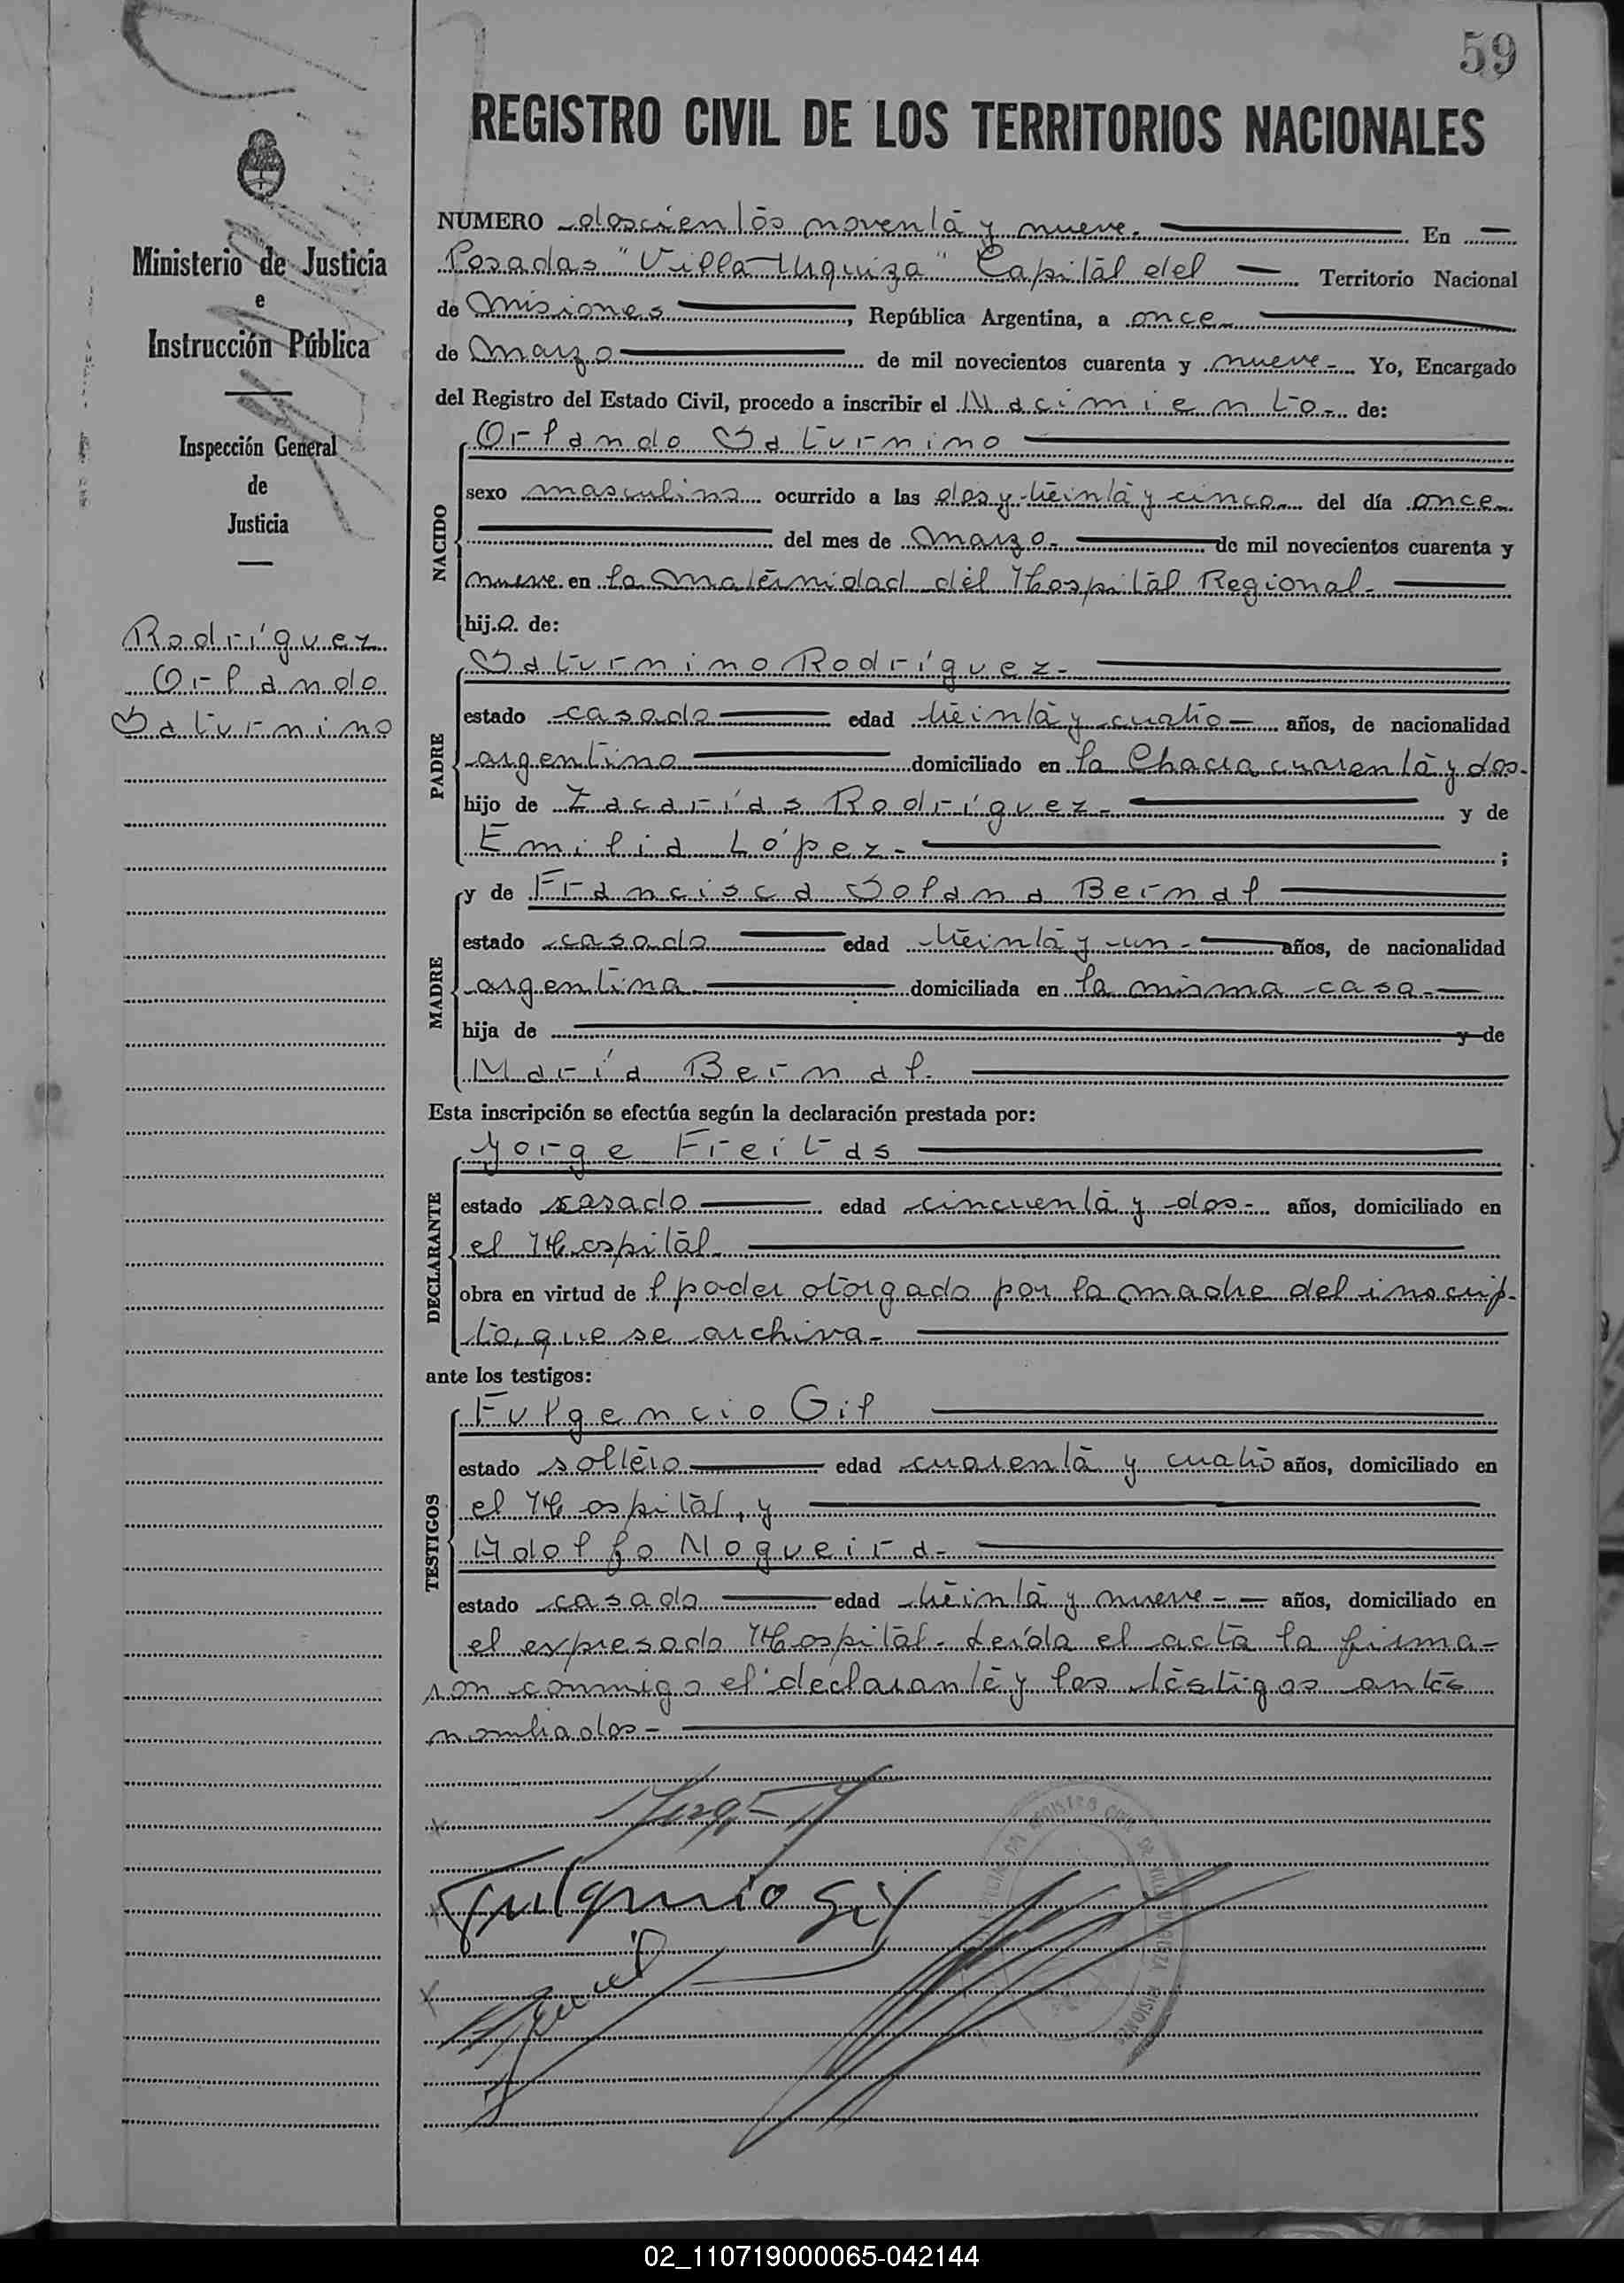 59
REGISTRO CIVIL DE LOS TERRITORIOS NACIONALES
Ministerio de Justicia
e
Instrucción Pública
Inspección General
de
Justicia
Rodríguez
Orlando
Saturnino
NUMERO doscientos noventa y nueve. En
Posadas "Villa Urquiza" Capital del Territorio Nacional
de Misiones, República Argentina, a once
de Marzo de mil novecientos cuarenta y nueve- Yo, Encargado
del Registro del Estado Civil, procedo a inscribir el Nacimiento- de:
NACIDO
Orlando Saturnino
sexo masculino ocurrido a las dos y treinta y cinco del día once
del mes de Marzo- de mil novecientos cuarenta y
nueve en la Maternidad del Hospital Regional-
hijo de:
PADRE
Saturnino Rodríguez-
estado casado edad treinta y cuatro años, de nacionalidad
argentino domiciliado en la Chacra cuarenta y dos-
hijo de Zacarías Rodríguez- y de
Emilia López- ;
MADRE
y de Francisca Solana Bernal
estado casada edad treinta y un- años, de nacionalidad
argentina domiciliada en la misma casa-
hija de y de
María Bernal-
Esta inscripción se efectúa según la declaración prestada por:
DECLARANTE
Jorge Freitas
estado casado edad cincuenta y dos- años, domiciliado en
el Hospital
obra en virtud de l poder otorgado por la madre del inscrip-
to, que se archiva-
ante los testigos:
TESTIGOS
Fulgencio Gil
estado soltero edad cuarenta y cuatro años, domiciliado en
el Hospital, y
Adolfo Nogueira-
estado casado edad treinta y nueve- años, domiciliado en
el expresado Hospital- Leída el acta la firma-
ron conmigo el declarante y los testigos antes
nombrados-
Fulgencio Gil
02_110719000065-042144